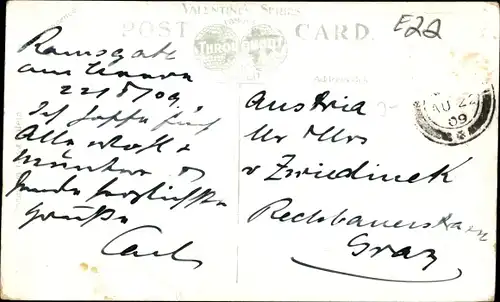 VALENTINE'S SERIES
POST CARD.
E22
Ramsgate
22/8/09.
Ich hoffe
Alle wohl &
munter
herzlichste
Grüße
Carl
Austria
Mr & Mrs
v Zwiedinek
Rechbauerstrasse
Graz
AU 22
09